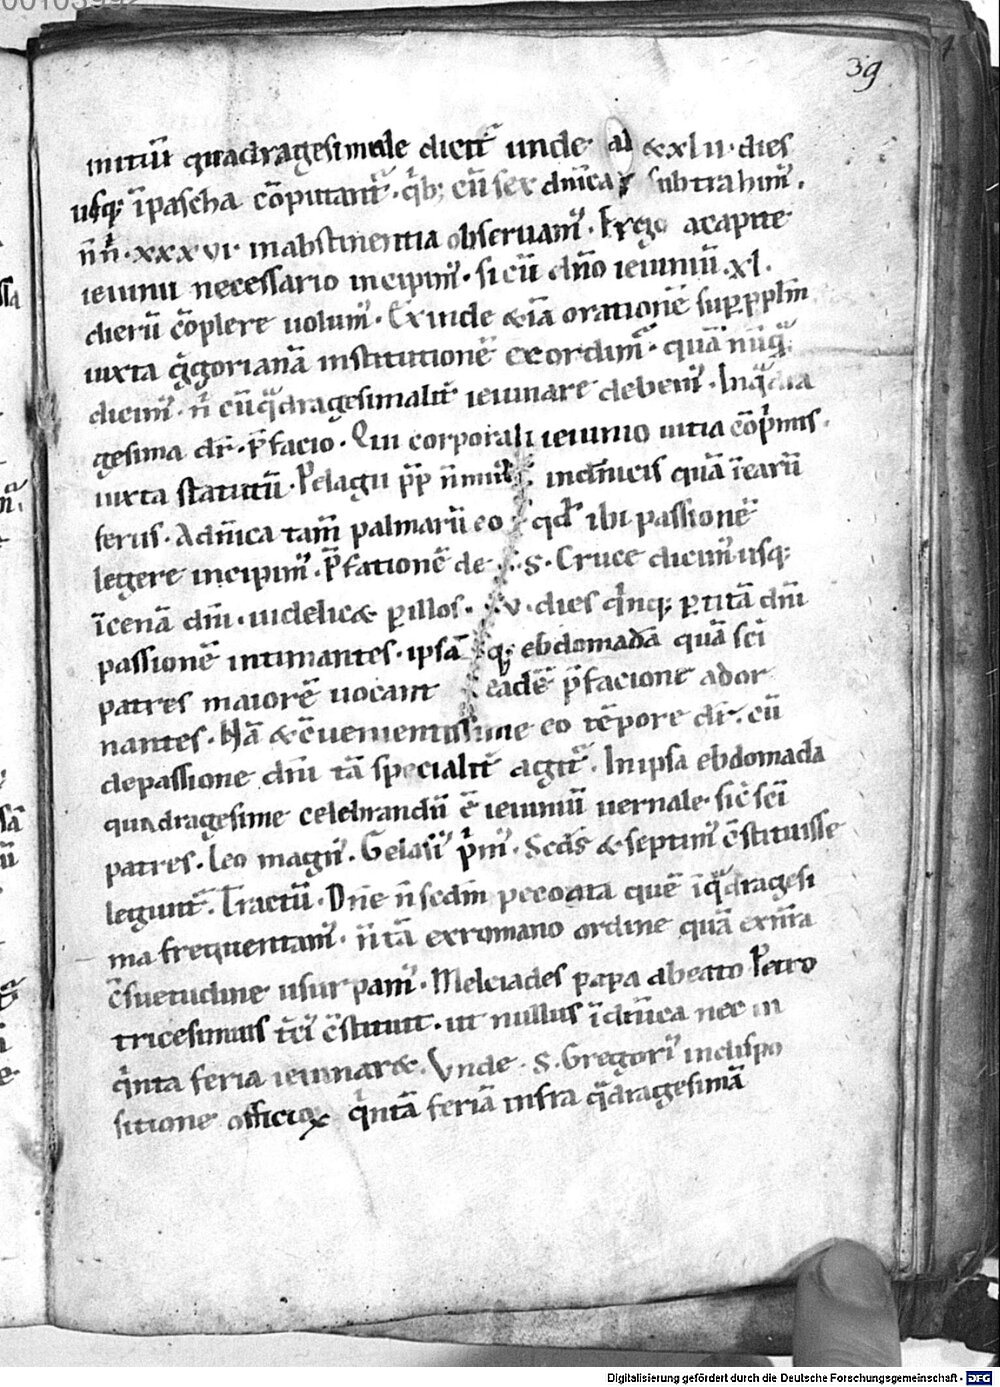 00103992
39
initiū quadragesimale dicit̄ unde al &xlii· dies
usq; īpascha cōputant̄· q̇b; cū sex dn̄icas subtrahim᷒.
n̄n̄·xxxvi· inabstinentia obseruam᷒· Ergo acapite
ieiunii necessario incipim᷒· si cū dn̄o ieiuniū·xl·
dierū cōplere uolum᷒· Exinde &iā orationē sup̄ pp̄lm̄
iuxta ġgorianā institutionē exordim᷒· quā nūq̄;
dicim᷒· n̄ cū q̄dragesimalit̄ ieiunare debem᷒· Inq̄dra
gesima dr̄· p̄facio· Qui corporali ieiunio uitia cōp̄mis·
iuxta statutū· Pelagii pp̄ indn̄icis quā īearū
feriis· Adn̄ica tam̄ palmarū eo qd̄ ibi passionē
legere incipim᷒· P̄fationē de·S· Cruce dicim᷒ usq;
īcenā dn̄i· uidelic& p̄illos·v· dies q̇nq; p̄ totā dn̄i
passionē intimantes· ipsā q; ebdomadā quā sc̄i
patres maiorē uocant eādē p̄facione ador
nantes· Nā &c̄uenientissime eo tēpore dr̄· cū
depassione dn̄i tā specialit̄ agit̄· Inipsa ebdomada
quadragesime celebrandū ē ieiuniū uernale· sic̄ sc̄i
patres· Leo magn᷒· Gelasi᷒ p̄m᷒· Scd̄s & septim᷒ c̄stituisse
legunt̄· Tractū· Dn̄e n̄ scdm̄ peccata quē īq̄dragesi
ma frequentam᷒· n̄ tā exromano ordine quā exn̄ra
c̄suetudine usurpam᷒· Melciades papa abeato Petro
tricesimus tc̄i᷒ c̄stituit· ut nullus īdn̄ica nec in
q̇nta feria ieiunar&· Vnde·S· Gregori᷒ indispo
sitione officioꝝ q̇ntā feriā infra q̄dragesimā
Digitalisierung gefördert durch die Deutsche Forschungsgemeinschaft · DFG